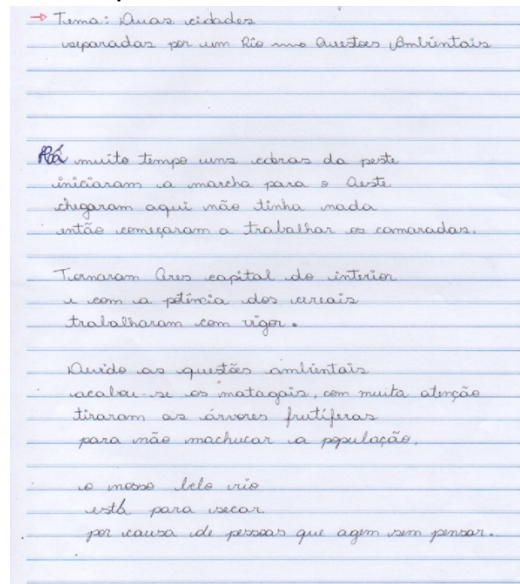 → Tema: Duas cidades
separadas por um Rio nas Questões Ambientais
Há muito tempo uns cobras da peste
iniciaram a marcha para o Oeste
chegaram aqui não tinha nada
então começaram a trabalhar os camaradas.
Tornaram Ares capital do interior
e com a potência dos cereais
trabalharam com vigor.
Devido as questões ambientais
acabou-se os matagais, com muita atenção
tiraram as árvores frutíferas
para não machucar a população.
o nosso belo rio
está para secar
por causa de pessoas que agem sem pensar.